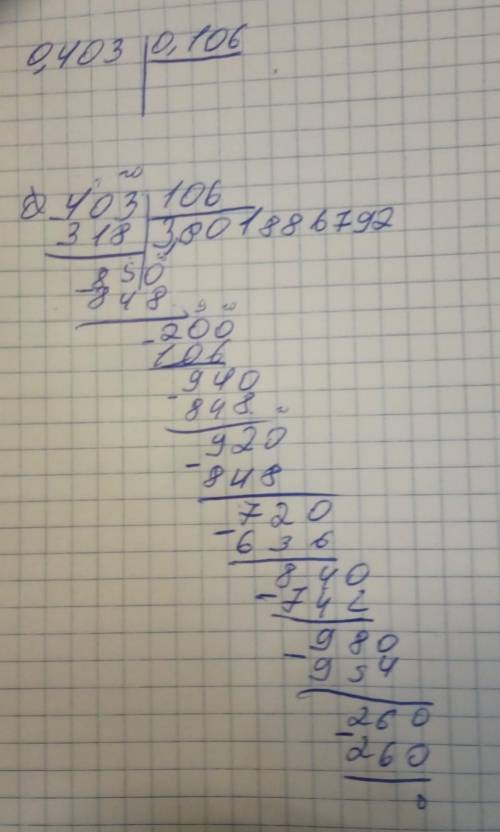 0,403 0,106
403 106
318 3,801886792
850
848
200
106
940
848
920
848
720
636
840
742
980
954
260
260
0